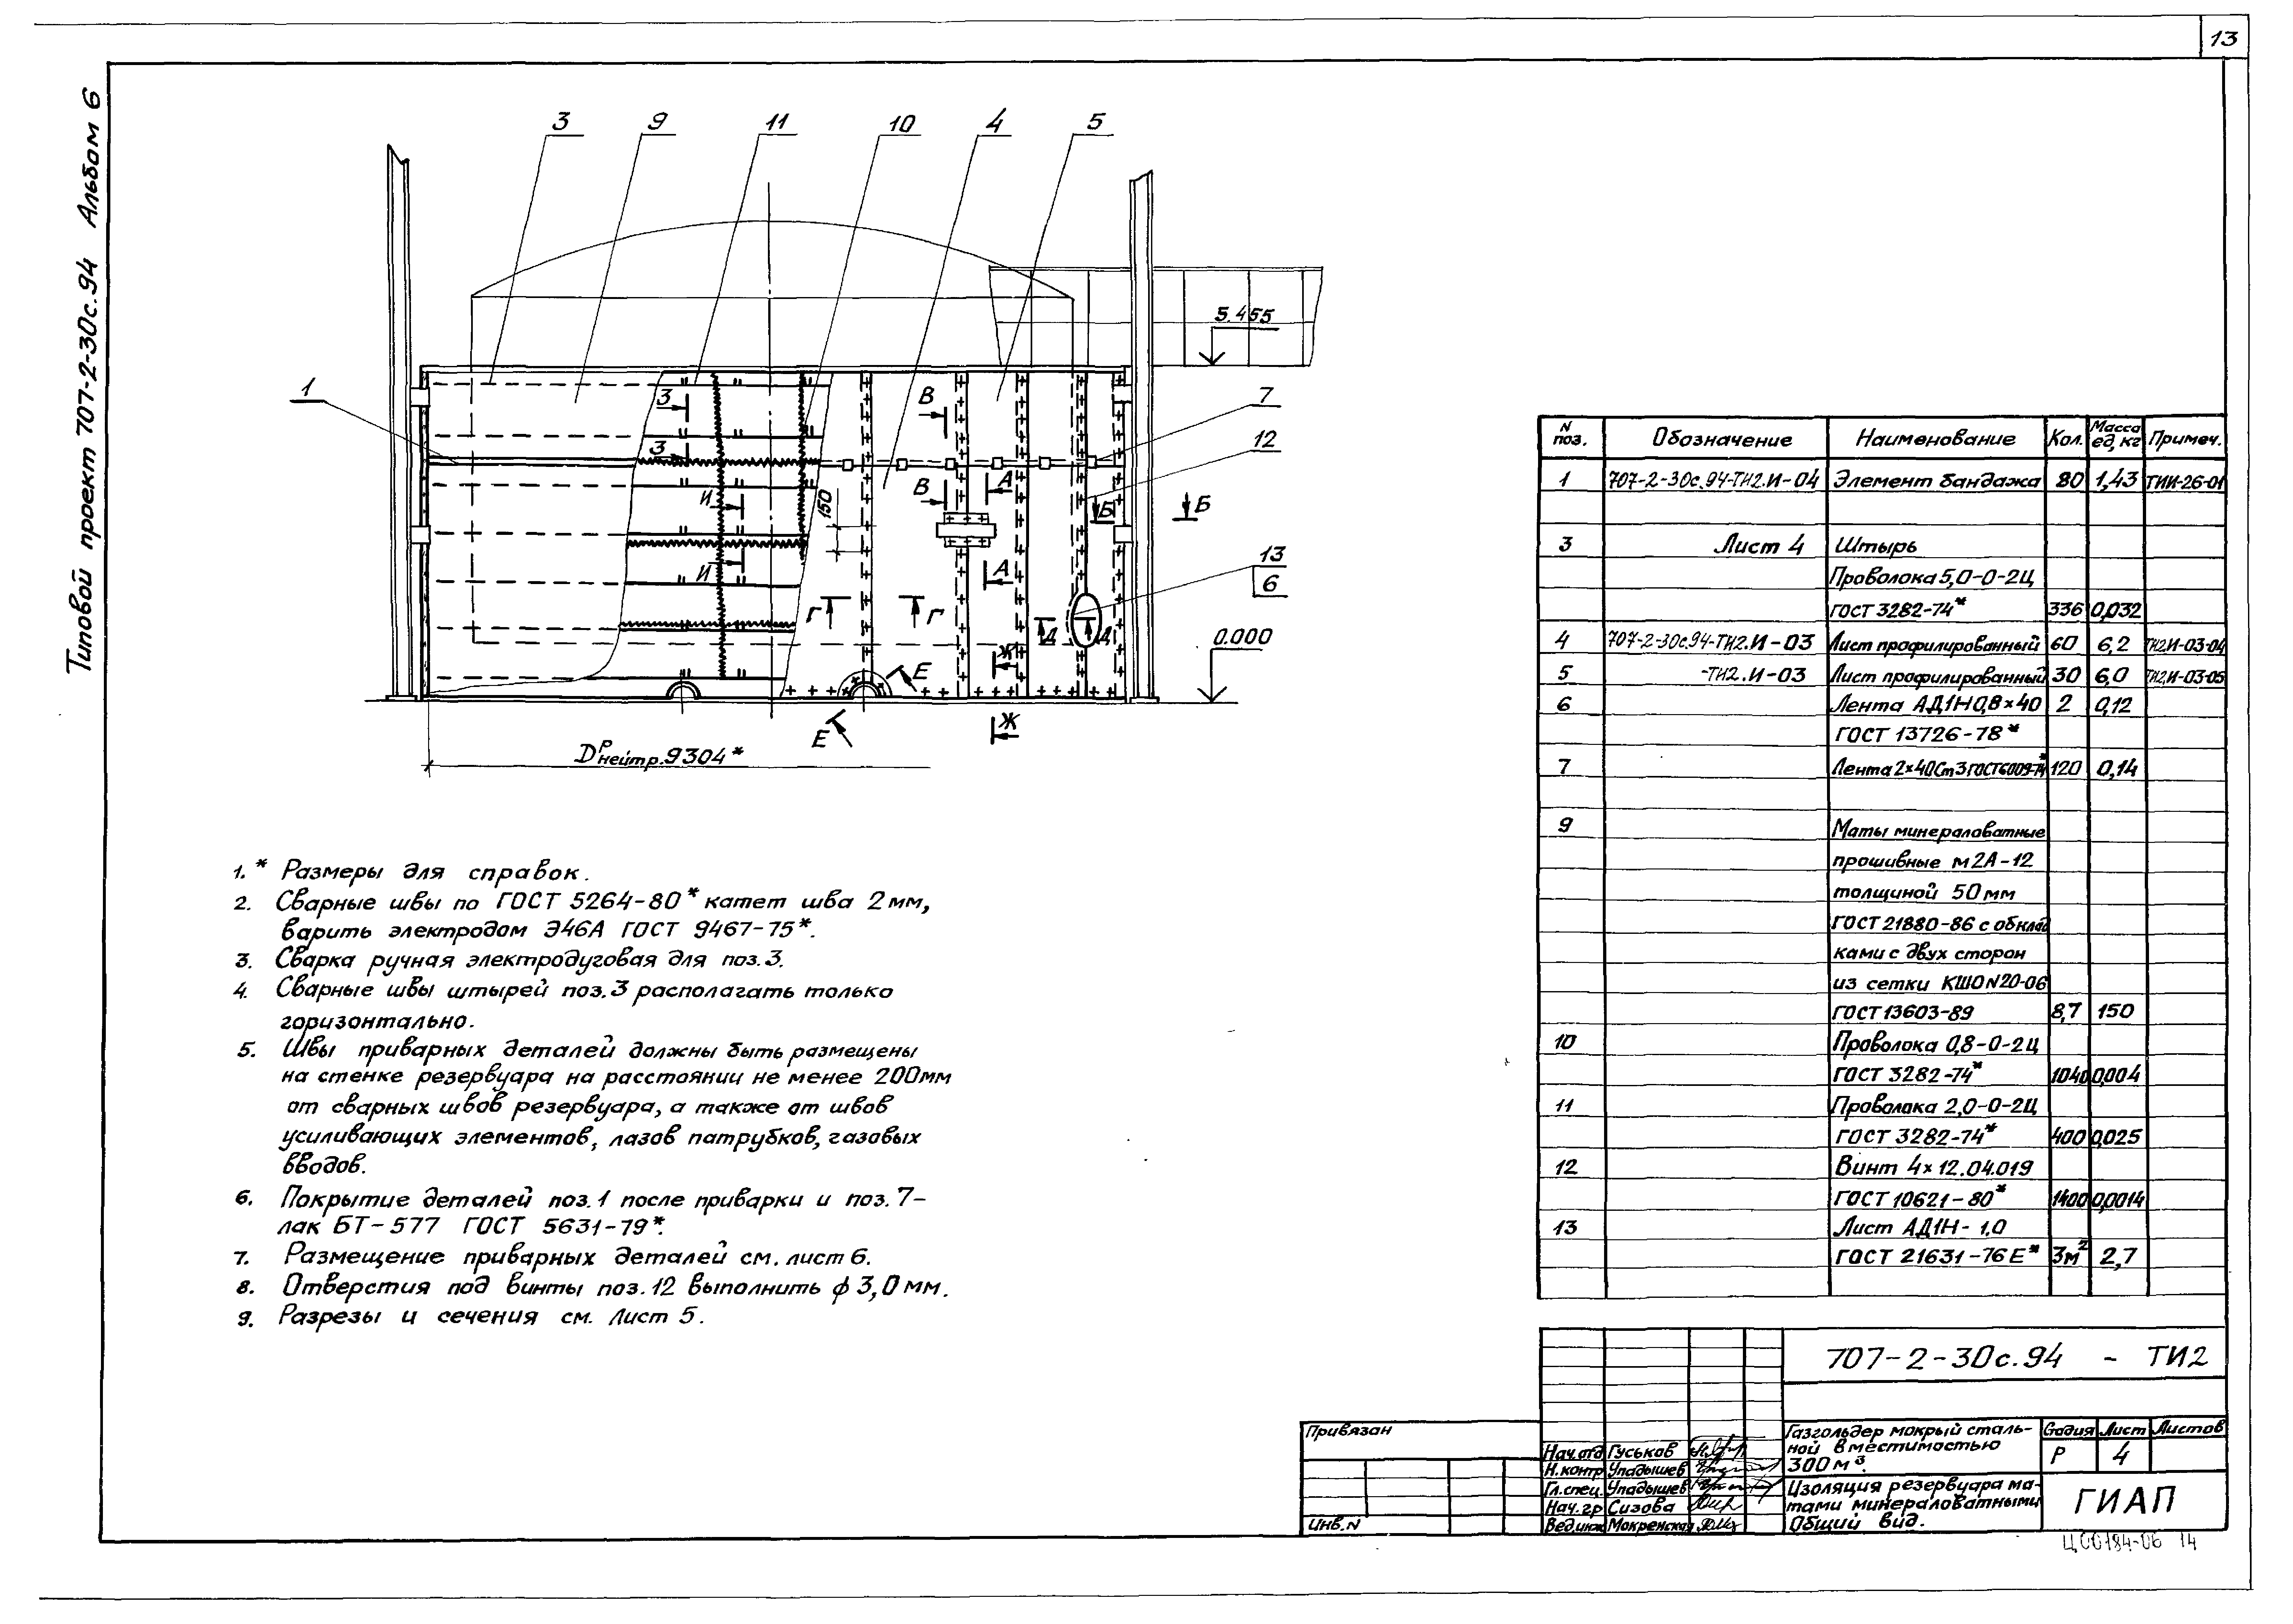 13
Типовой проект 707-2-30с.94 Альбом 6
3 9 11 10 4 5
5.455
1
7
12
З
З
В
В
А
А
Б
Б
И
И
150
13
6
Г Г
Д Д
0.000
Ж
Ж
Е
Е
Dᴾнейтр.9304*
1.* Размеры для справок.
2. Сварные швы по ГОСТ 5264-80* катет шва 2мм,
варить электродом Э46А ГОСТ 9467-75*.
3. Сварка ручная электродуговая для поз.3.
4. Сварные швы штырей поз.3 располагать только
горизонтально.
5. Швы приварных деталей должны быть размещены
на стенке резервуара на расстоянии не менее 200мм
от сварных швов резервуара, а также от швов
усиливающих элементов, лазов патрубков, газовых
вводов.
6. Покрытие деталей поз.1 после приварки и поз.7-
лак БТ-577 ГОСТ 5631-79*.
7. Размещение приварных деталей см. лист 6.
8. Отверстия под винты поз.12 выполнить ϕ 3,0мм.
9. Разрезы и сечения см. Лист 5.
N поз. Обозначение Наименование Кол. Масса ед, кг Примеч.
1 707-2-30с.94-ТИ2.И-04 Элемент бандажа 80 1,43 ТИИ-26-01
3 Лист 4 Штырь
Проволока 5,0-О-2Ц
ГОСТ 3282-74* 336 0,032
4 707-2-30с.94-ТИ2.И-03 Лист профилированный 60 6,2 ТИ2.И-03-04
5 -ТИ2.И-03 Лист профилированный 30 6,0 ТИ2.И-03-05
6 Лента АД1Н 0,8×40 2 0,12
ГОСТ 13726-78*
7 Лента 2×40 Ст3 ГОСТ 6009-74* 120 0,14
9 Маты минераловатные
прошивные м2А-12
толщиной 50мм
ГОСТ 21880-86 с обклад
ками с двух сторон
из сетки КШОN20-06
ГОСТ 13603-89 8,7 150
10 Проволока 0,8-О-2Ц
ГОСТ 3282-74* 1040 0,004
11 Проволока 2,0-О-2Ц
ГОСТ 3282-74* 400 0,025
12 Винт 4×12.04.019
ГОСТ 10621-80* 1400 0,0014
13 Лист АД1Н-1,0
ГОСТ 21631-76Е* 3м² 2,7
707-2-30с.94 - ТИ2
Привязан
Инв.N
Нач.отд Гуськов
Н.контр Упадышев
Гл.спец. Упадышев
Нач.гр Сизова
Вед.инж Мокренская
Газгольдер мокрый сталь-
ной вместимостью
300м³.
Стадия Лист Листов
Р 4
Изоляция резервуара ма-
тами минераловатными
Общий вид.
ГИАП
Ц00184-06 14